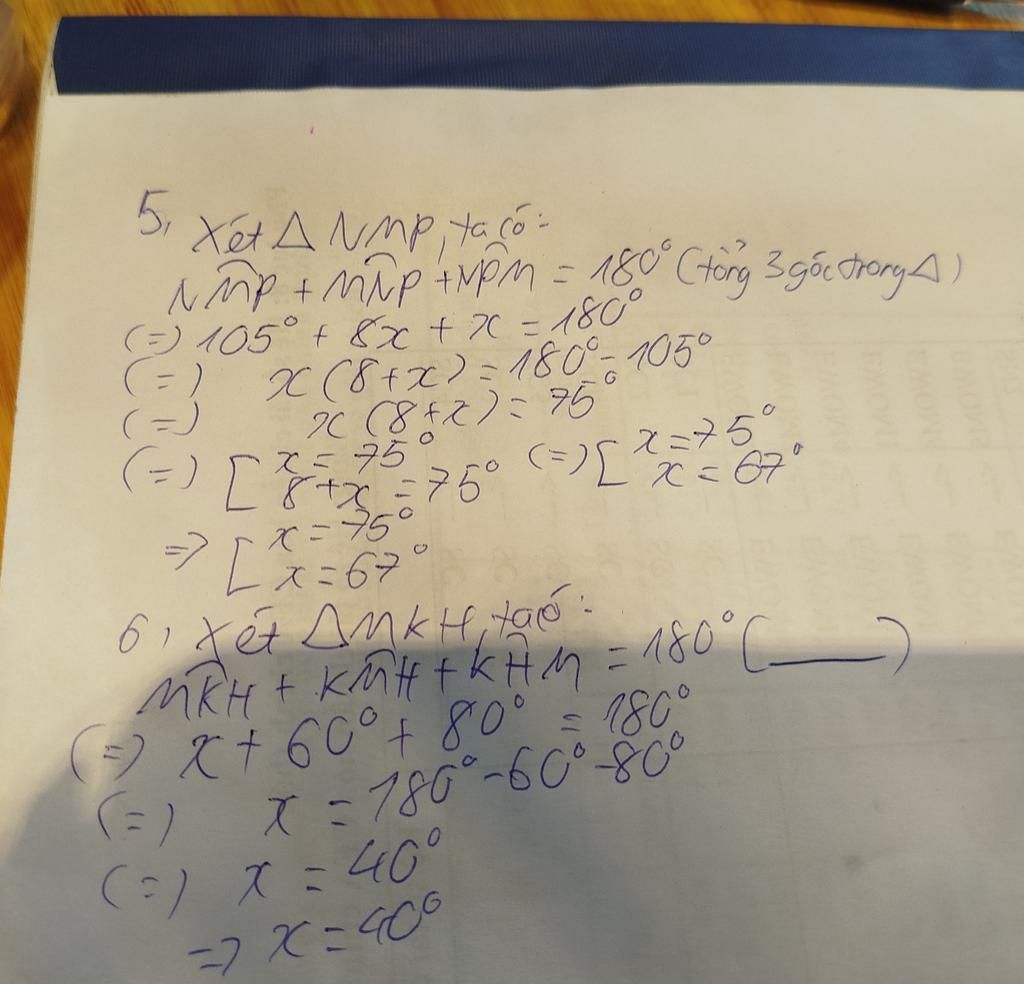 5, Xét △ NMP, ta có:
NM̂P + MN̂P + NP̂M = 180° (tổng 3 góc trong △)
(=) 105° + 8x + x = 180°
(=) x (8+x) = 180° - 105°
(=) x (8+x) = 75°
(=) [ x = 75° (=) [ x = 75°
8+x = 75° x = 67°
=> [ x = 75°
x = 67°
6, Xét △MKH, ta có:
MK̂H + KM̂H + KĤM = 180° (____)
(=) x + 60° + 80° = 180°
(=) x = 180° - 60° - 80°
(=) x = 40°
=> x = 40°